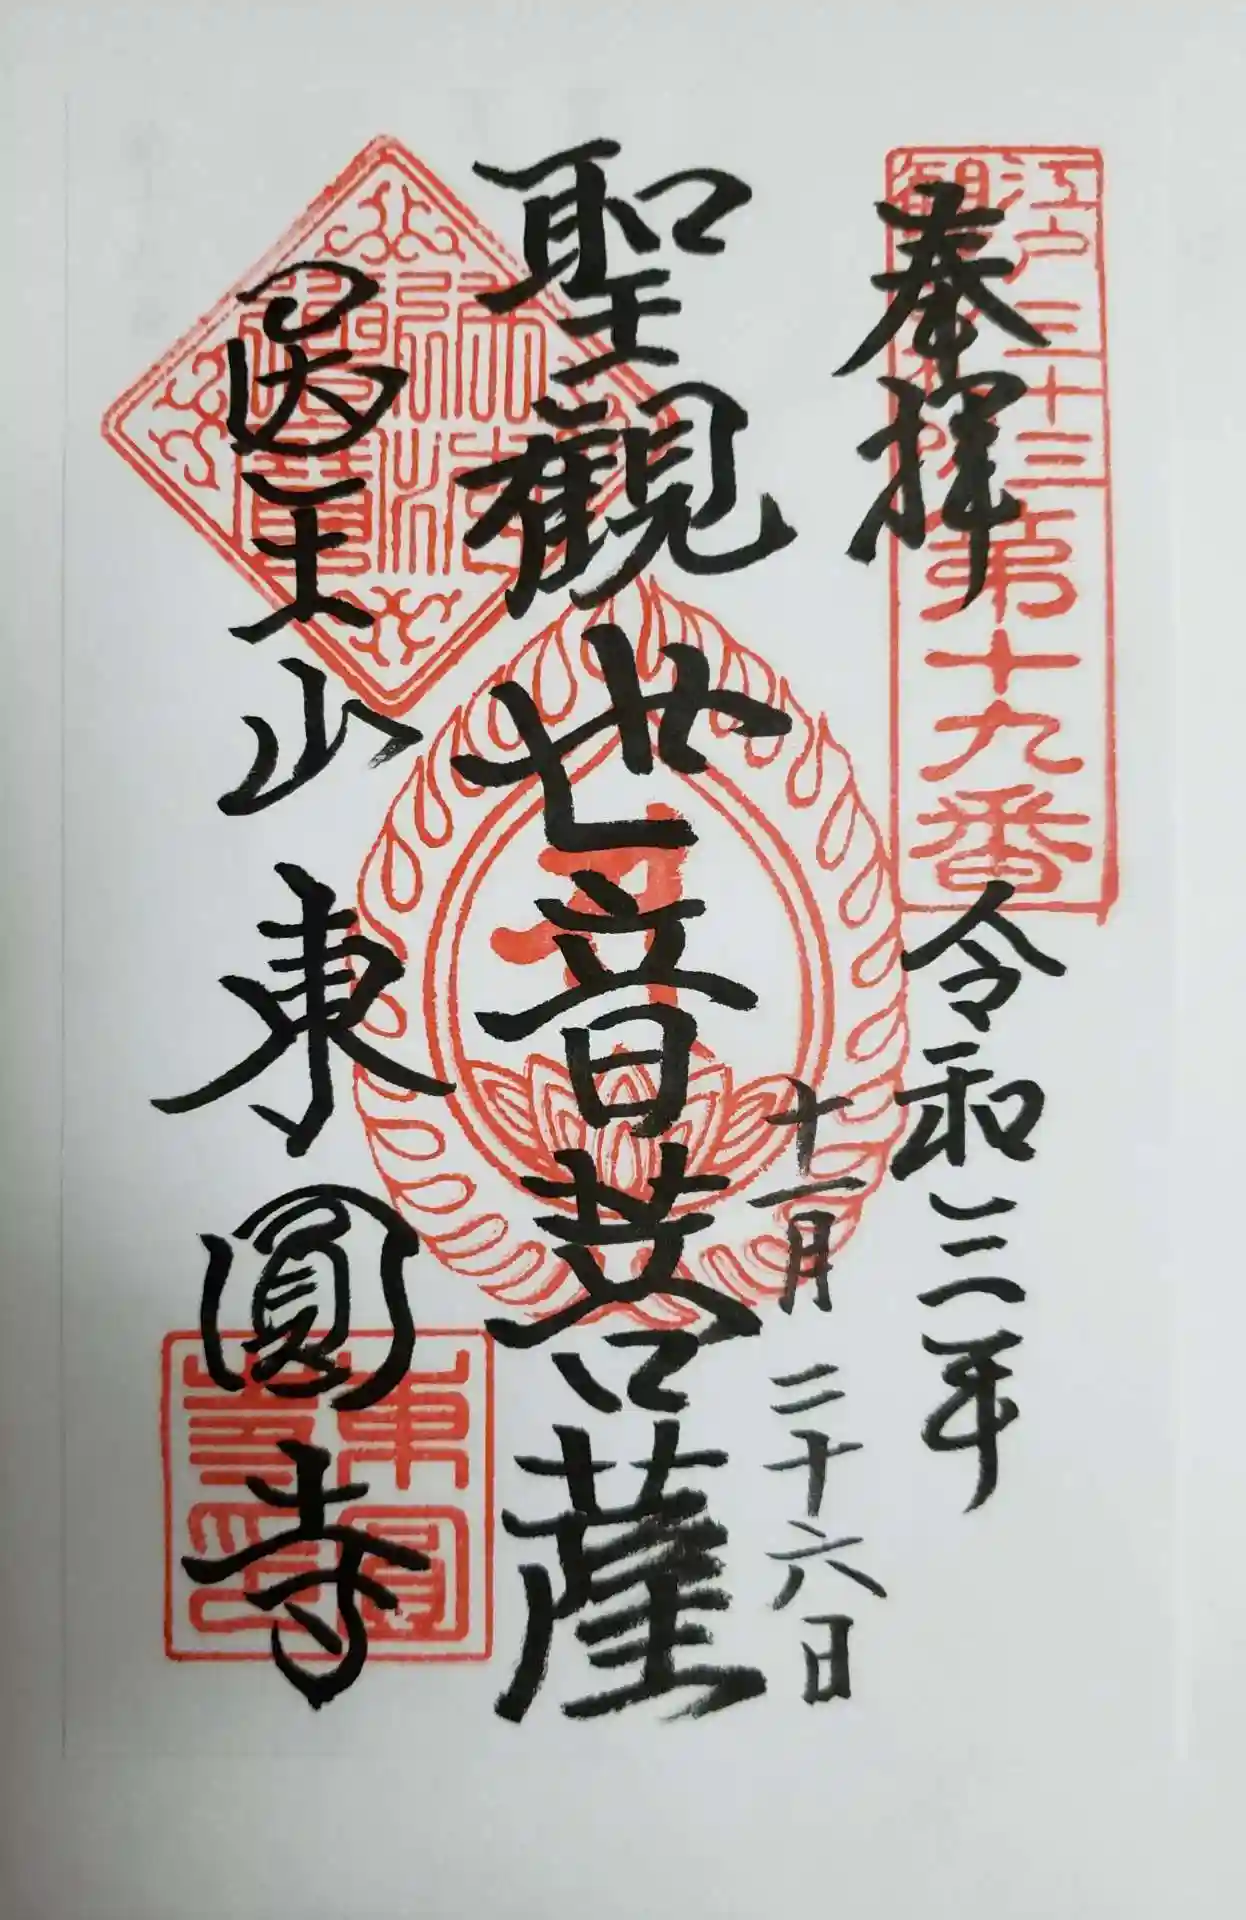 奉拝
江戸三十三
観音札所
第十九番
令和三年
十一月二十六日
聖観世音菩薩
医王山東圓寺
佛法僧寶
東圓寺印